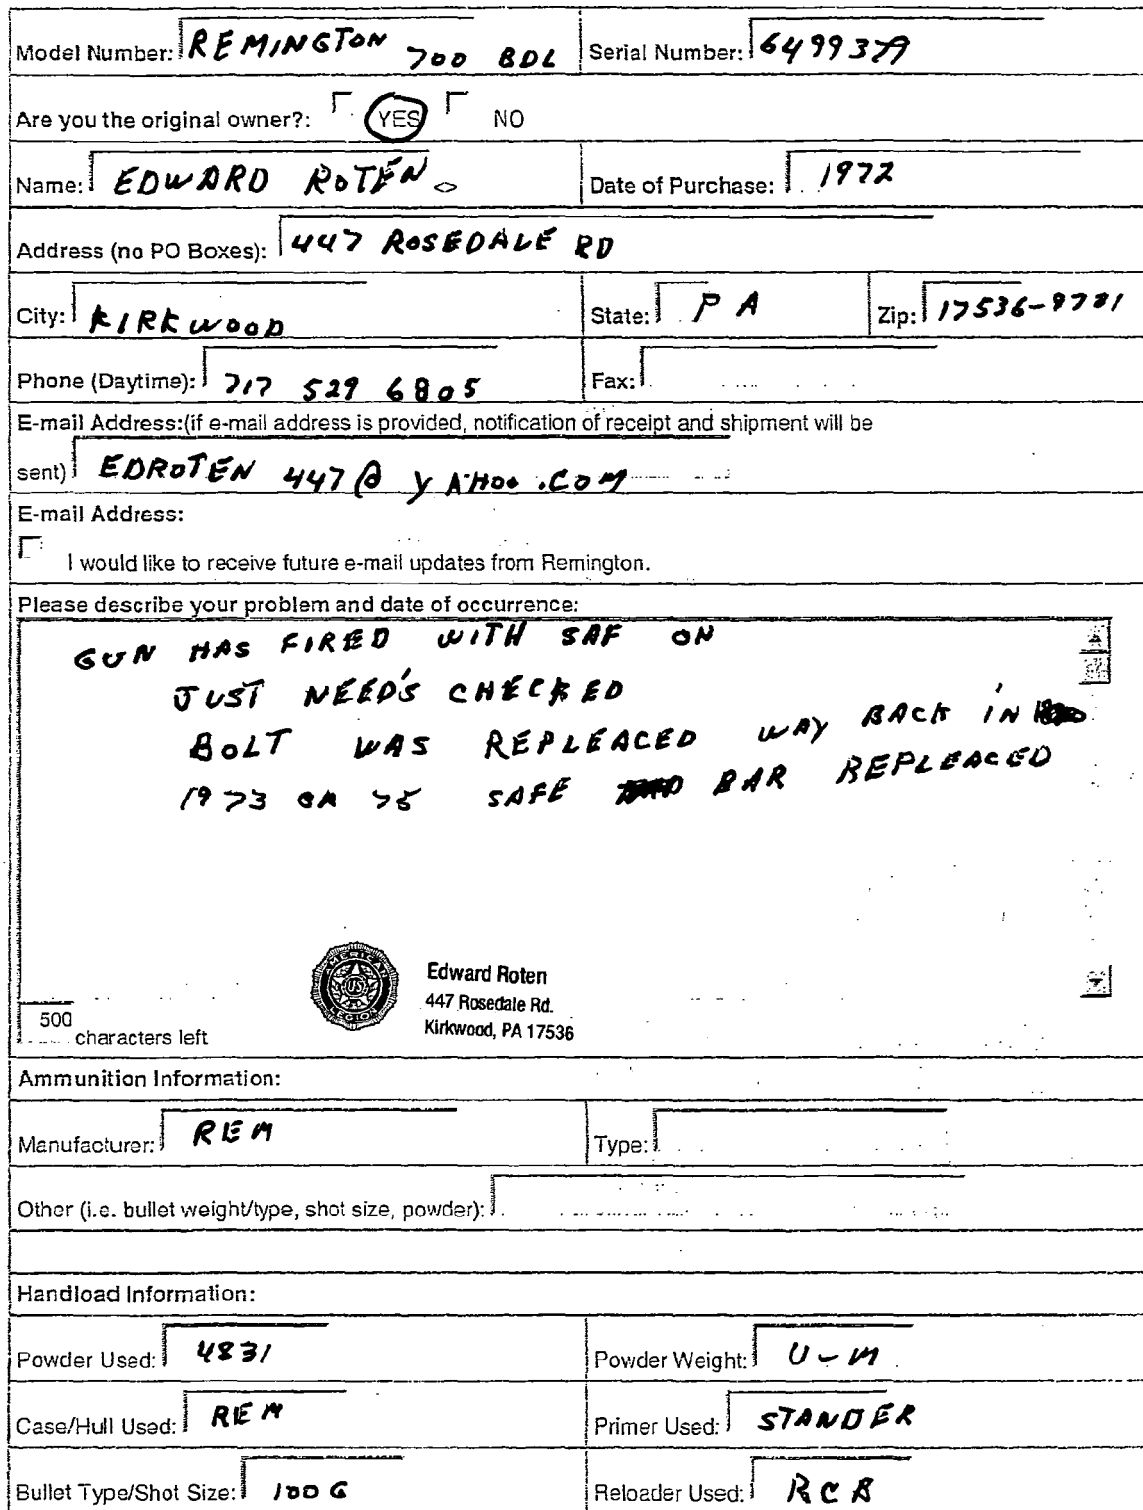 Model Number: REMINGTON 700 BDL Serial Number:
Are you the original owner?: YES NO
Name: EDWARD ROTEN Date of Purchase: 1972
Address (no PO Boxes): 447 ROSEDALE RD
City: KIRKWOOD State: PA Zip: 17536-9781
Phone (Daytime): 717 529 6805 Fax:
E-mail Address:(if e-mail address is provided, notification of receipt and shipment will be
sent) EDROTEN 447@ YAHOO.COM
E-mail Address:
I would like to receive future e-mail updates from Remington.
Please describe your problem and date of occurrence:
GUN HAS FIRED WITH SAF ON
JUST NEED'S CHECKED
BOLT WAS REPLEACED WAY BACK IN
1973 OR 75 SAFE BAR REPLEACED
AMERICAN
US
LEGION
Edward Roten
447 Rosedale Rd.
Kirkwood, PA 17536
500
characters left
Ammunition Information:
Manufacturer: REM Type:
Other (i.e. bullet weight/type, shot size, powder):
Handload Information:
Powder Used: 4831 Powder Weight: U-M
Case/Hull Used: REM Primer Used: STANDER
Bullet Type/Shot Size: 100 G Reloader Used: RCB